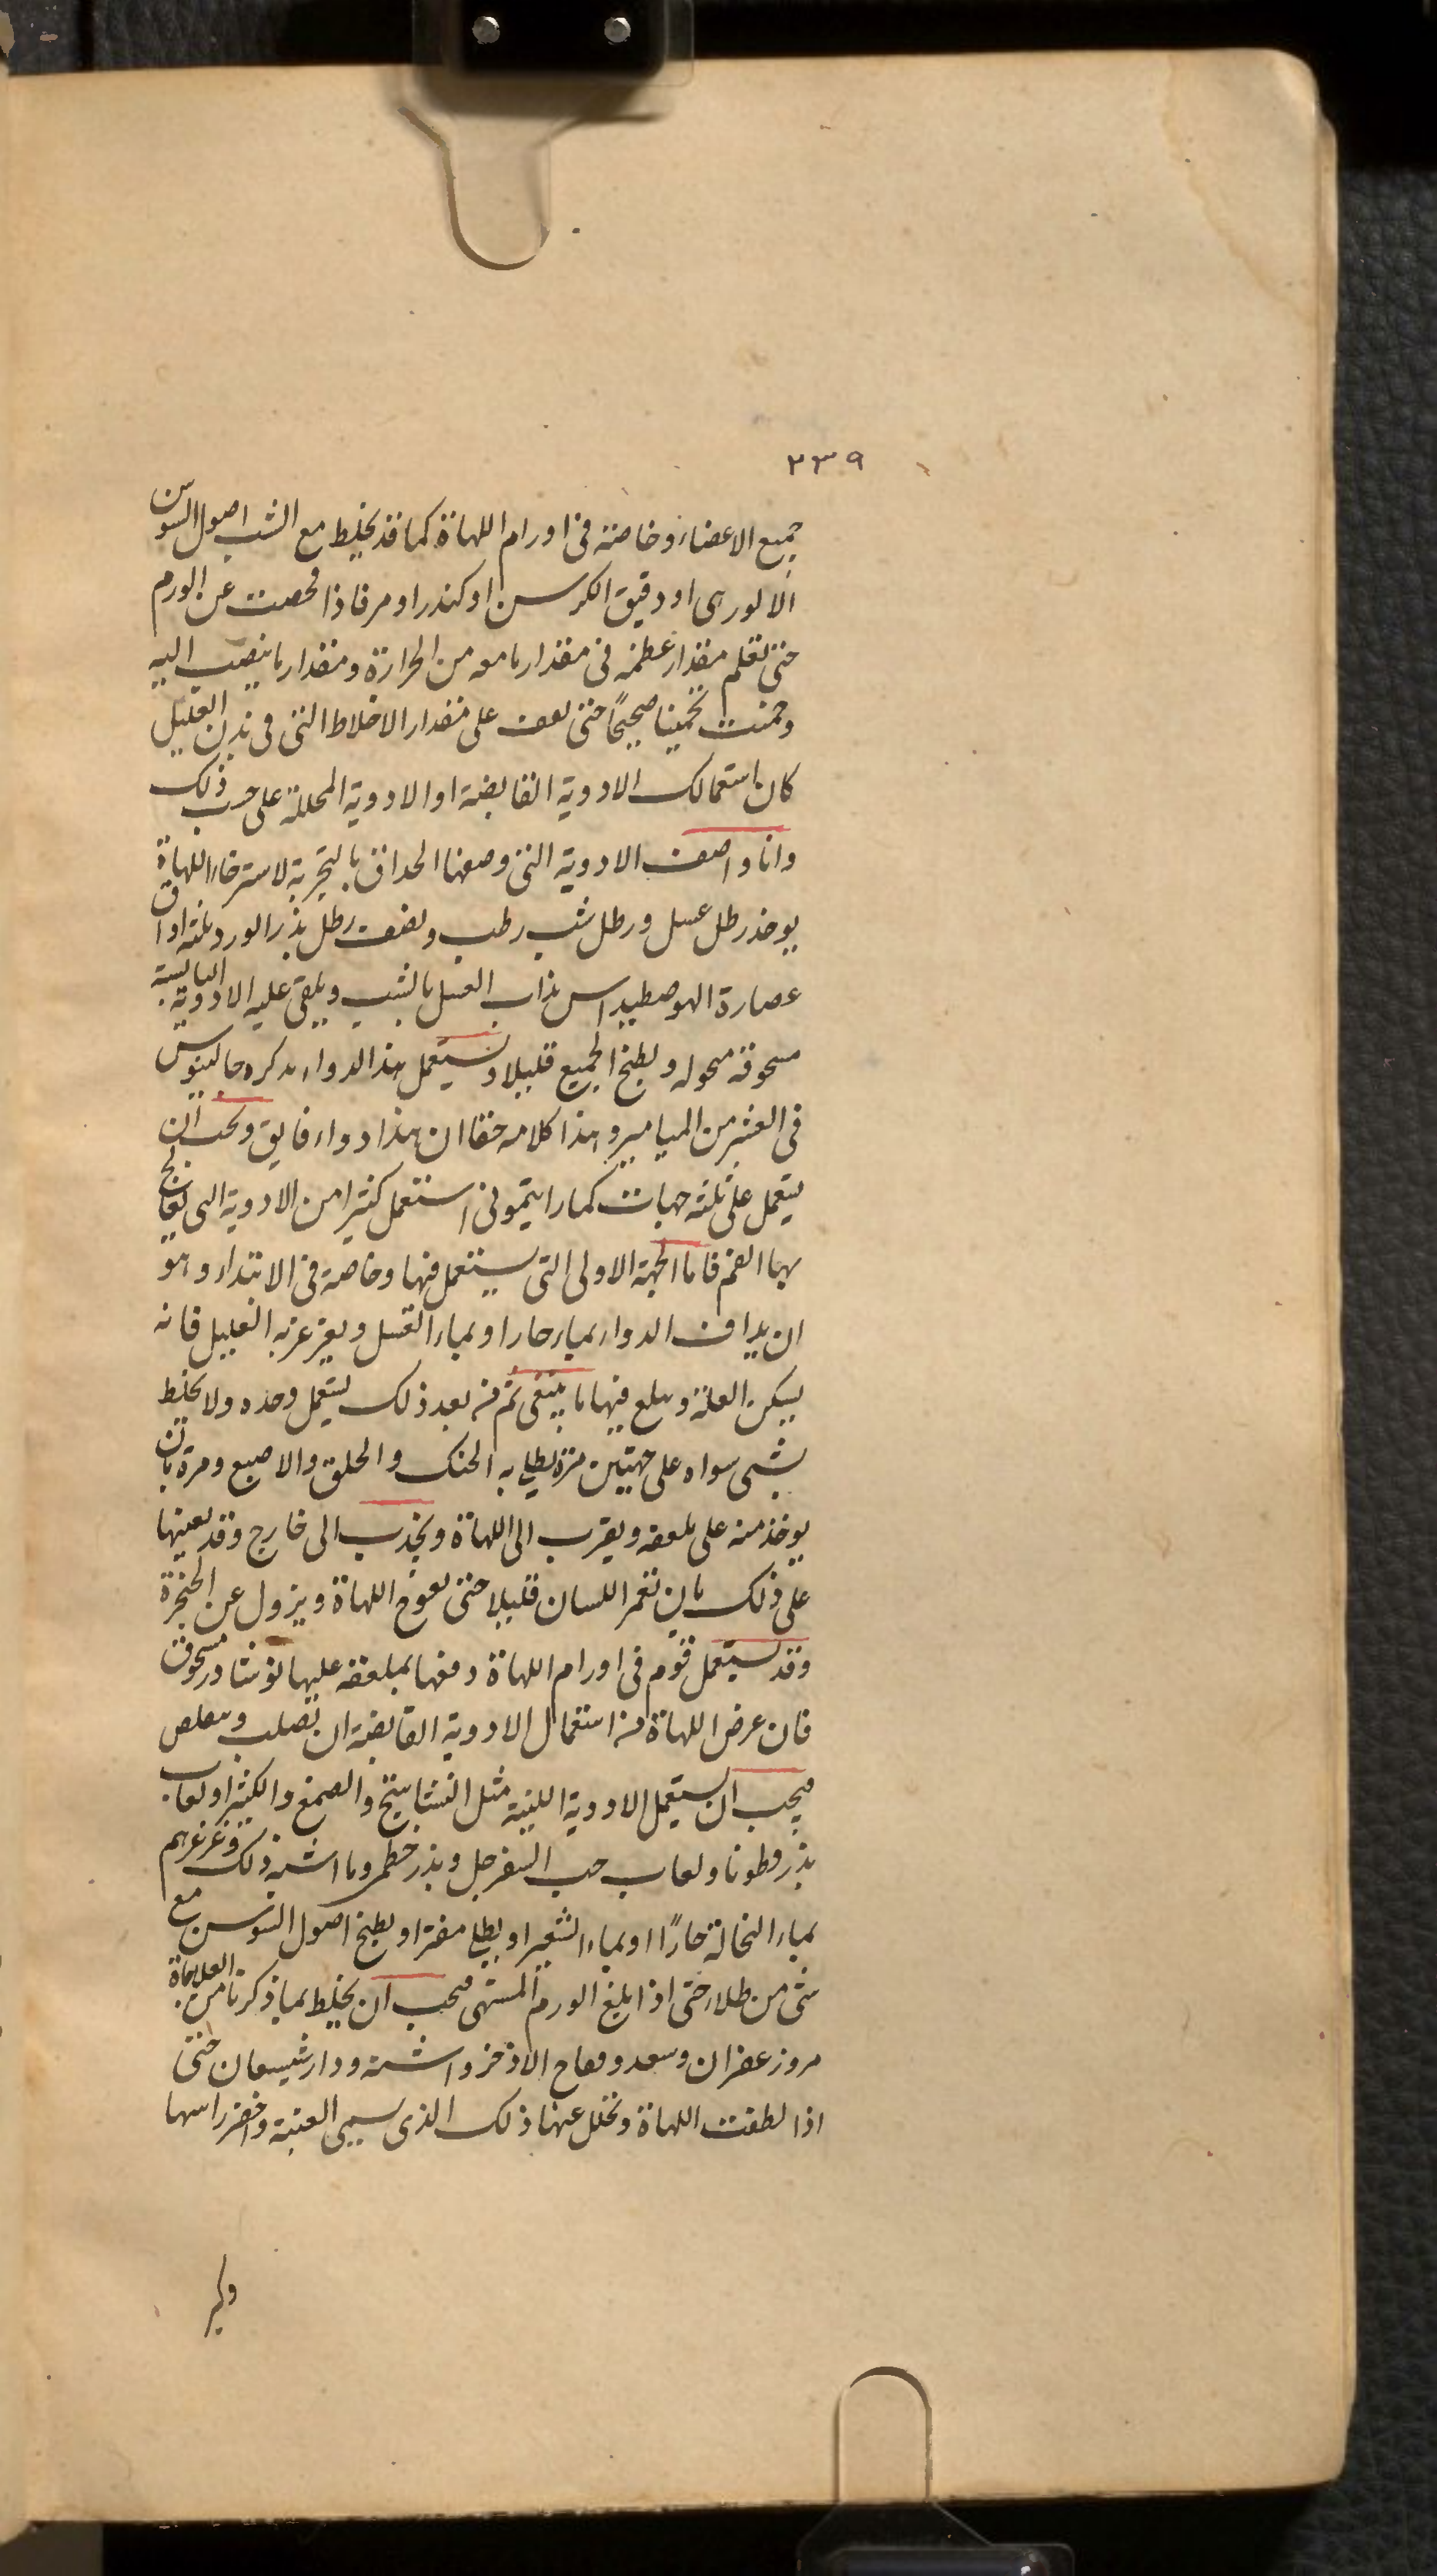 ٢٣٩
جميع الاعضاء وخاصة فى اورام اللهاة كما قد يخلط مع الشب اصول السوسن
او دقيق الكرسن او كندر او مر فاذا فحصت عن الورم
حتى تعلم مقدار عظمه فى مقدار ما معه من الحرارة ومقدار ما ينصب اليه
وخمنت تخمينا صحيحًا حتى تقف على مقدار الاخلاط التى فى بدن العليل
كان استعمالك الادوية القابضة او الادوية المحللة على حسب ذلك
وانا واصف الادوية التى وصفها الحذاق بالتجربة لاسترخاء اللهاة
يوخذ رطل عسل ورطل شب رطب ونصف رطل بذر الورد ثلثة اواق
عصارة الهوصطيداس يذاب العسل بالشب ويلقى عليه الادوية اليابسة
مسحوقة منخوله ويطبخ الجميع قليلا ويستعمل هذا الدواء يذكره جالينوس
فى العشر من الميامير وهذا كلامه حقا ان هذا دواء فايق ويجب ان
يستعمل على ثلثه جهات كما رايتمونى استعمل كثيرا من الادوية التى يعالج
بها الفم فاما الجهة الاولى التى يستعمل فيها وخاصة فى الابتداء وهو
ان يداف الدواء بماء حار او بماء العسل ويغرغر به العليل فانه
يسكن العلة ويبلغ فيها ما ينبغى ثم من بعد ذلك يستعمل وحده ولا يخلط
بشى سواه على جهتين مرة يطلى به الحنك والحلق والاصبع ومرة بان
يوخذ منه على ملعقه ويقرب الى اللهاة ويجذب الى خارج وقد يعينها
على ذلك بان تغمر اللسان قليلا حتى اللهاة ويزول عن الحنجرة
وقد يستعمل قوم فى اورام اللهاة دفعها بملعقه عليها نوشادر مسحوق
فان عرض اللهاة من استعمال الادوية القابضة ان تصلب وتتقلص
فيجب ان يستعمل الادوية اللينة مثل النشاستج والصمغ والكثيرا ولعاب
بذر قطونا ولعاب حب السفرجل وبذر خطمى وما اشبه ذلك وغرغرهم
بماء النخالة حارًا او بماء الشعير او بطلى مفترا وبطبخ اصول السوسن مع
شى من طلاء حتى اذا بلغ الورم المنتهى فيجب ان يخلط بما ذكرنا من العلاجاة
مر وزعفران وسعد وفقاح الاذخر واشنه ودارشيسعان حتى
اذا لطفت اللهاة وتحلل عنها ذلك الذى سمى العنبة واخضر راسها